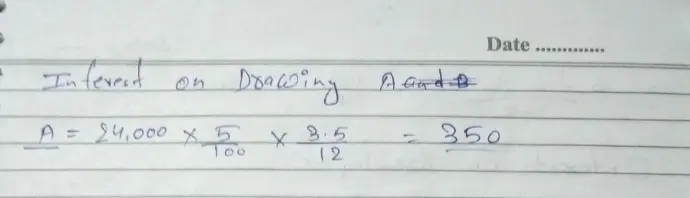 Date .............
Interest on Drawing A and B
A = 24,000 × 5/100 × 3.5/12 = 350